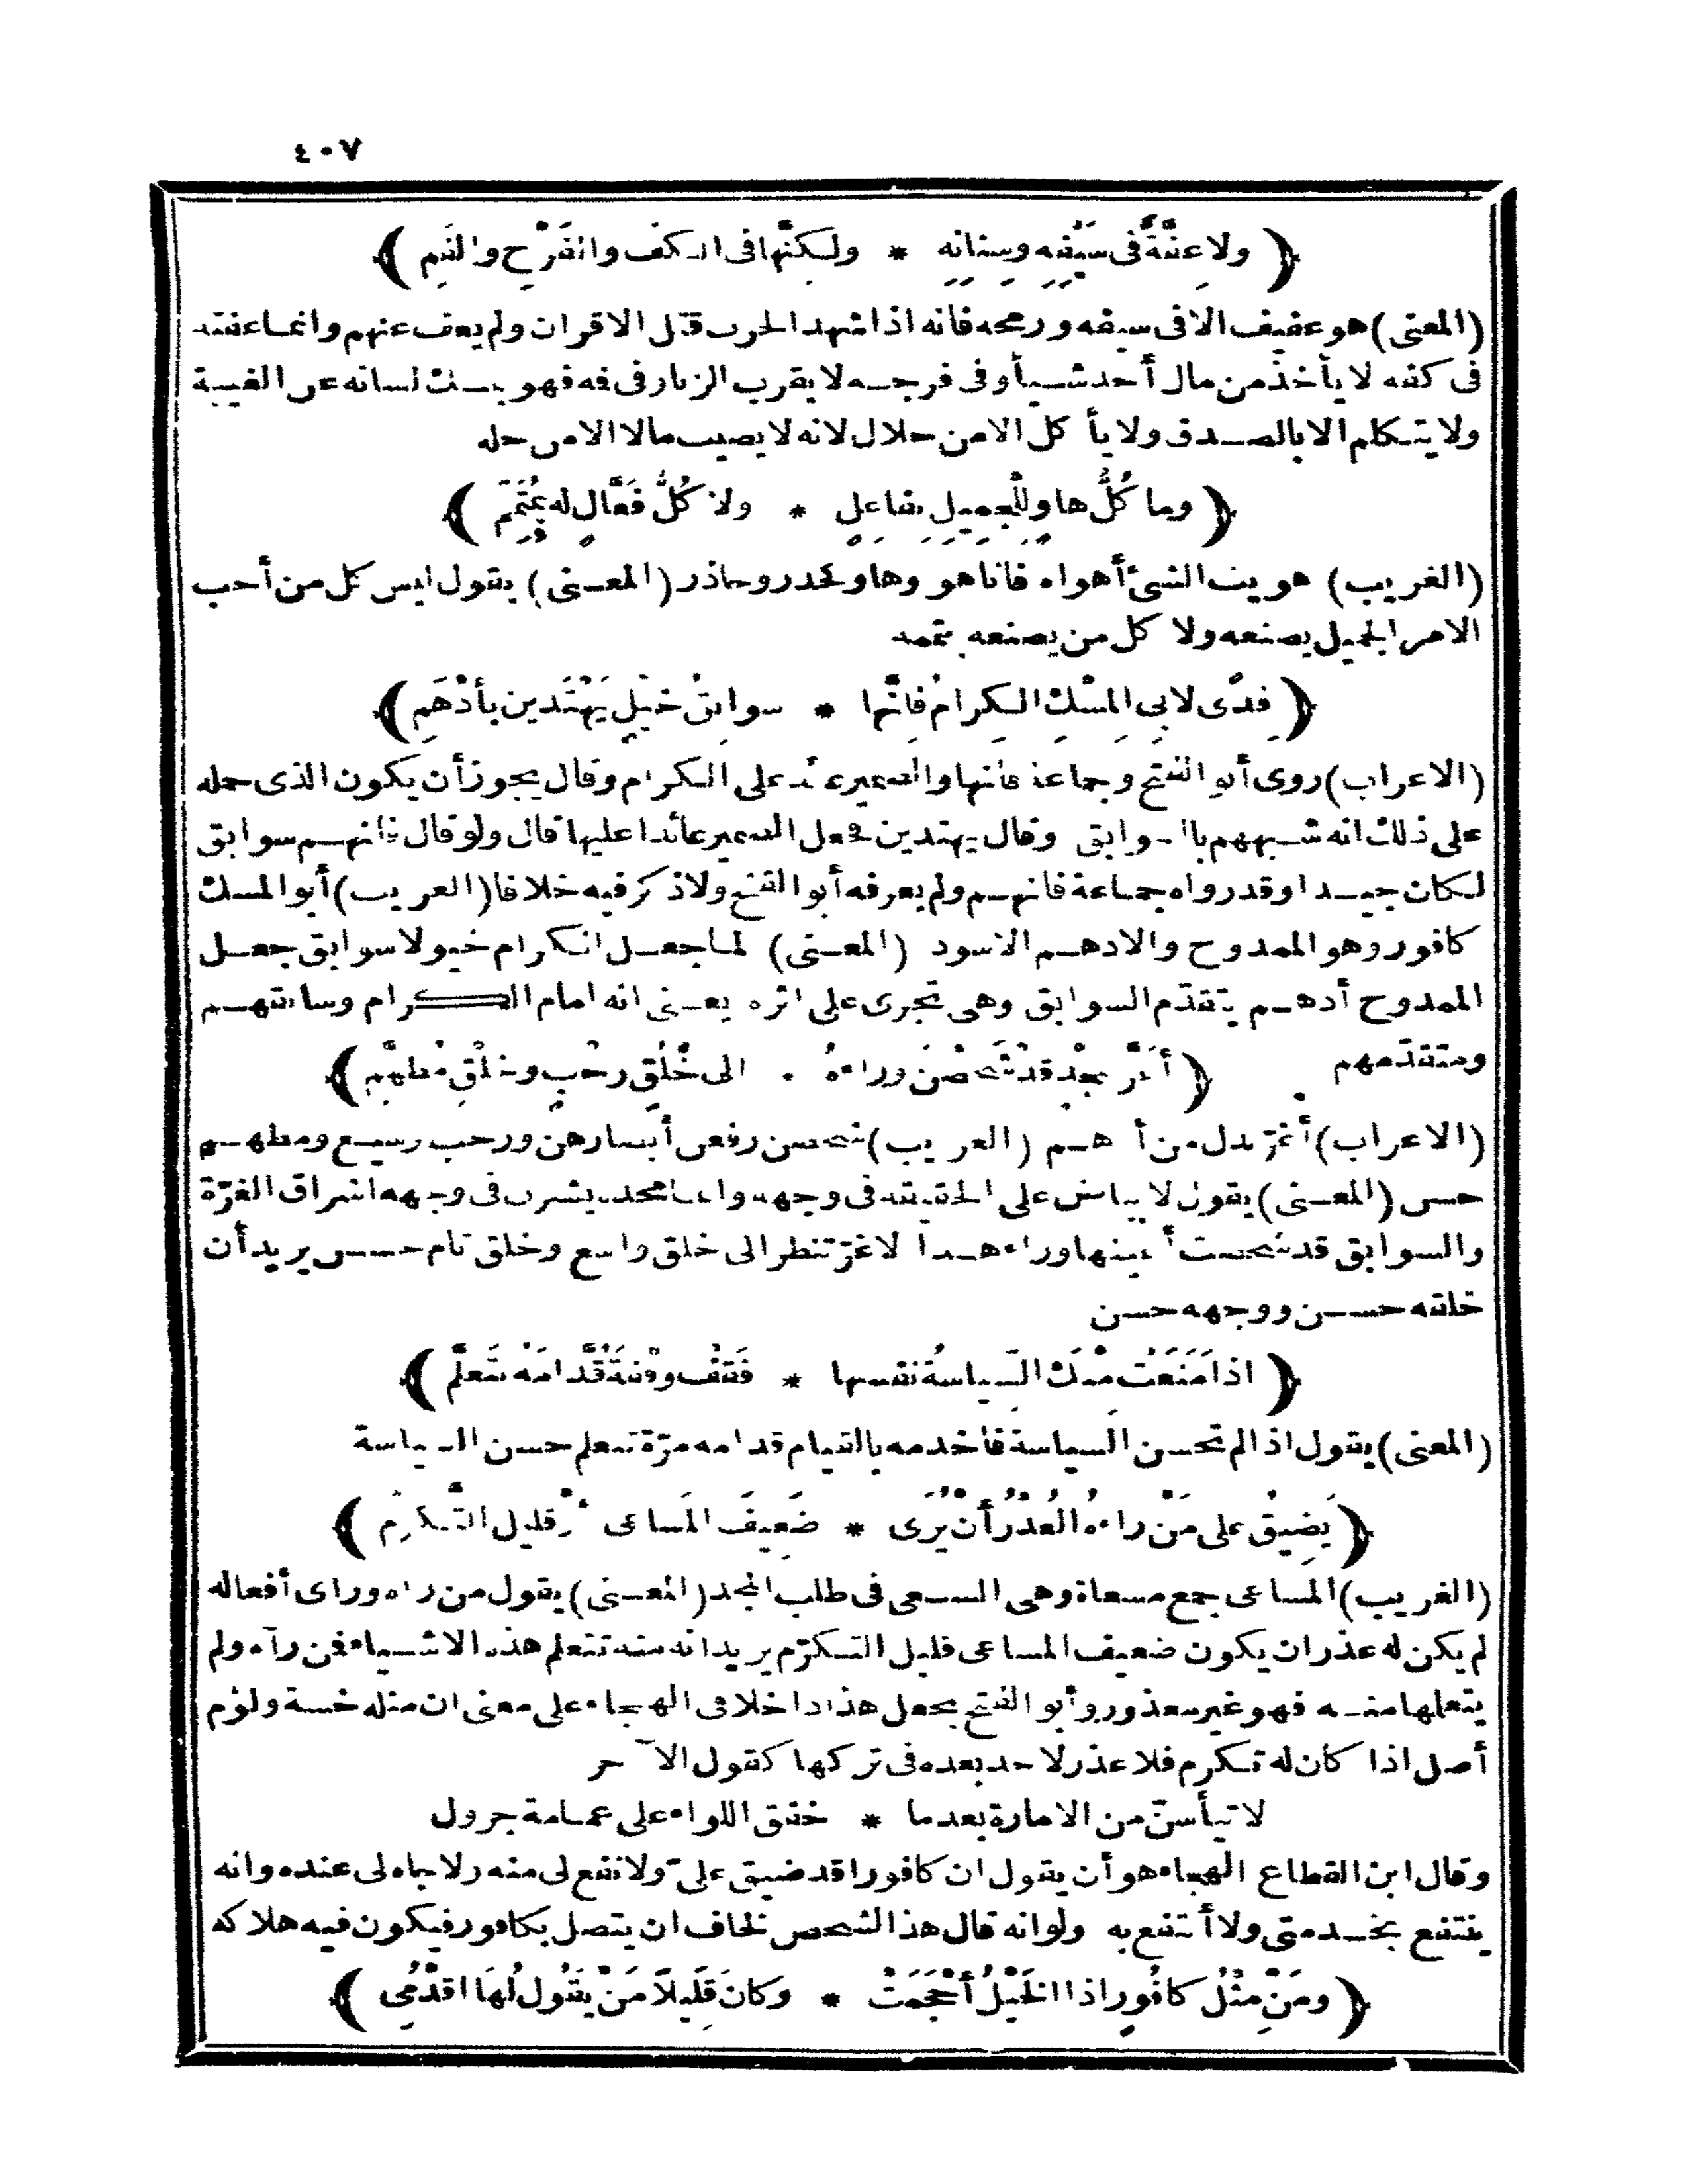 ٤٠٧
﴿ ولا عِفَّةٌ فى سَيْفِهِ وسِنانِهِ * ولكنَّها فى الكَفِّ والفَرْجِ والفَمِ ﴾
(المعنى) هو عفيف الا فى سيفه ورمحه فانه اذا شهد الحرب قتل الاقران ولم يعف عنهم وانما عفته
فى كفه لا يأخذ من مال أحد شيأ وفى فرجه لا يقرب الزنا وفى فه فهو يمسك لسانه عن الغيبة
ولا يتكلم الا بالصدق ولا يأ كل الا من حلال لانه لا يصيب مالا الا من حله
﴿ وما كُلُّ هاوٍ للْجميلِ بفاعلٍ * ولا كُلُّ فَعَّالٍ له بمُتَمِّمِ ﴾
(الغريب) هويت الشئ أهواه فانا هو وهاو كحذر وحاذر (المعنى) يقول ليس كل من أحب
الامر الجميل يصنعه ولا كل من يصنعه يتممه
﴿ فِدًى لابى المِسْكِ الكِرامُ فانَّها * سوابقُ خَيْلٍ يَهْتَدين بأدْهَمِ ﴾
(الاعراب) روى أبو الفتح وجماعة فانها والضمير عائد على الكرام وقال يجوز أن يكون الذى حمله
على ذلك انه شبههم بالسوابق وقال يهتدين فجعل الضمير عائدا عليها قال ولو قال فانهم سوابق
لكان جيدا وقد رواه جماعة فانهم ولم يعرفه أبو الفتح ولا ذكر فيه خلافا (الغريب) أبو المسك
كافور وهو الممدوح والادهم الاسود (المعنى) لما جعل الكرام خيولا سوابق جعل
الممدوح أدهم يتقدّم السوابق وهى تجرى على اثره يعنى انه امام الكرام وسابقهم
ومتقدّمهم
﴿ أغَرَّ بمجْدٍ قد شَخَصْنَ وراءهُ * الى خُلُقٍ رحْبٍ وخلْقٍ مُطَهَّمِ ﴾
(الاعراب) أغرّ بدل من أدهم (الغريب) شخصن رفعن أبصارهن ورحب وسيع ومطهم
حسن (المعنى) يقول لا بياض على الحقيقة فى وجهه وانما مجده يشرق فى وجهه اشراق الغرّة
والسوابق قد شخصت أعينها وراء هذا الاغرّ تنظر الى خلق واسع وخلق تام حسن يريد أن
خلقه حسن ووجهه حسن
﴿ اذا مَنَعَتْ منْكَ السِّياسةُ نفْسها * فَقِفْ وقْفةً قُدَّامَهُ تتعلَّم ﴾
(المعنى) يقول اذا لم تحسن السياسة فاخدمه بالقيام قدامه مرّة تتعلم حسن السياسة
﴿ يَضيقُ على مَنْ راءهُ العُذْرُ أنْ يُرَى * ضَعيفَ المَساعى أوْ قليل التَّكرُّم ﴾
(الغريب) المساعى جمع مسعاة وهى السعى فى طلب المجد (المعنى) يقول من راه وراى أفعاله
لم يكن له عذر ان يكون ضعيف المساعى قليل التكرّم يريد انه منه تتعلم هذه الاشياء فمن رآه ولم
يتعلمها منه فهو غير معذور وأبو الفتح يجعل هذا داخلا فى الهجاء على معنى ان مثله خسة ولؤم
أصل اذا كان له تكرم فلا عذر لاحد بعده فى تركها كقول الآخر
لا تيأسنّ من الامارة بعدما * خفق اللواء على عمامة جرول
وقال ابن القطاع الهجاء هو أن يقول ان كافورا قد ضيق علىّ ولا نفع لى منه ولا جاه لى عنده وانه
ينتفع بخدمتى ولا أنتفع به ولو انه قال هذا لشخص لخاف ان يتصل بكافور فيكون فيه هلاكه
﴿ ومَنْ مثْلُ كافُورٍ اذا الخَيْلُ أحْجَمَتْ * وكانَ قَليلاً مَنْ يقُول لَها اقدُمى ﴾